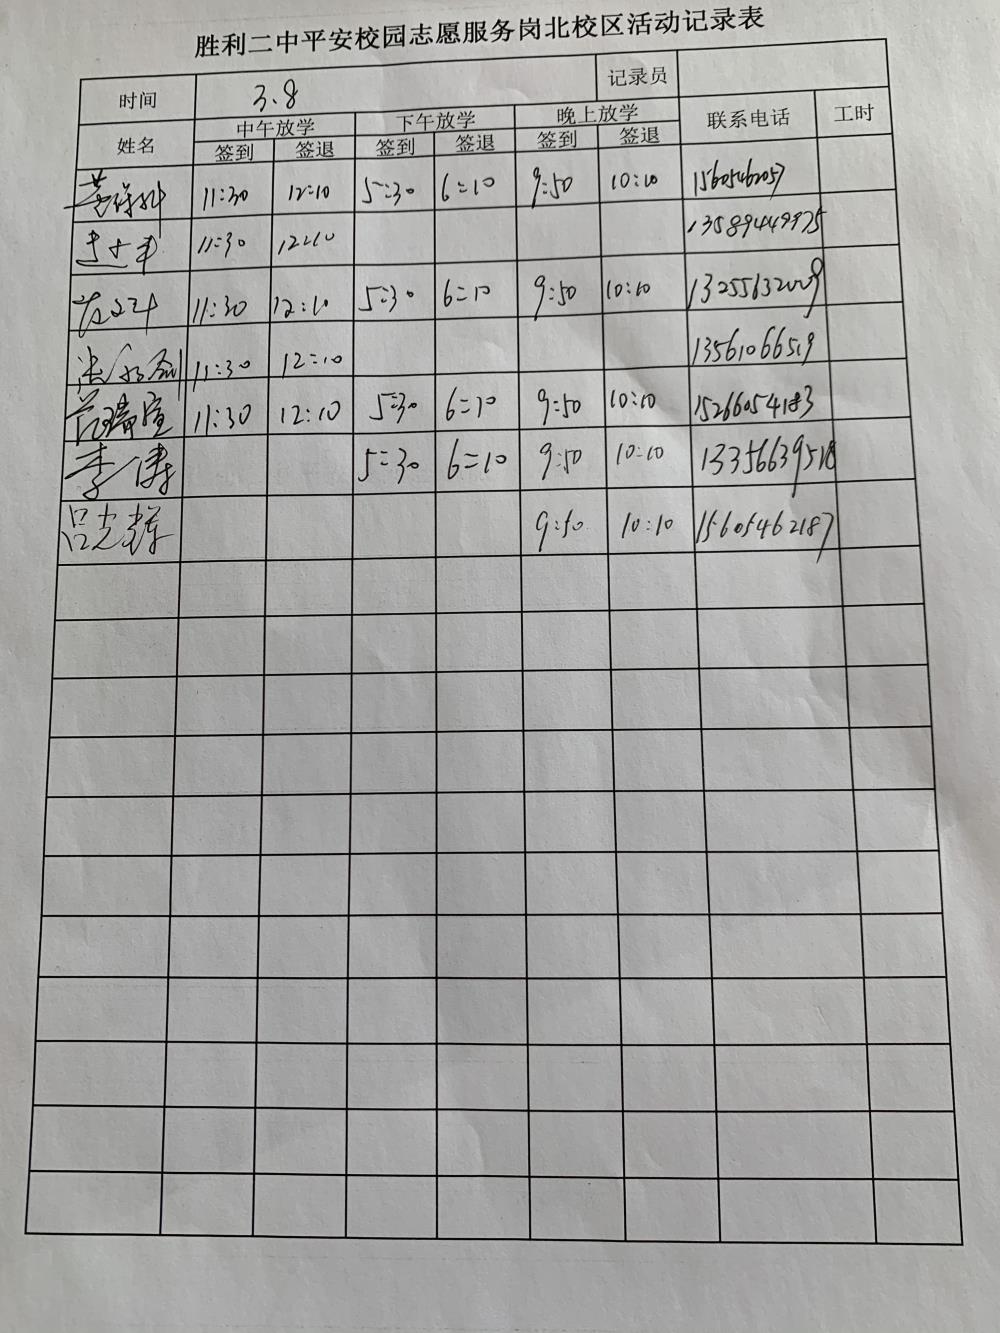 胜利二中平安校园志愿服务岗北校区活动记录表
时间 3.8 记录员
姓名 中午放学 下午放学 晚上放学 联系电话 工时
签到 签退 签到 签退 签到 签退
11:30 12:10 5:30 6:10 9:50 10:10 15605462057
11:30 12:10 13589449975
11:30 12:10 5:30 6:10 9:50 10:10 13255632009
11:30 12:10 13561066519
范瑞萱 11:30 12:10 5:30 6:10 9:50 10:10 15266054183
李倩 5:30 6:10 9:50 10:10 13356639518
吕光辉 9:50 10:10 15605462187